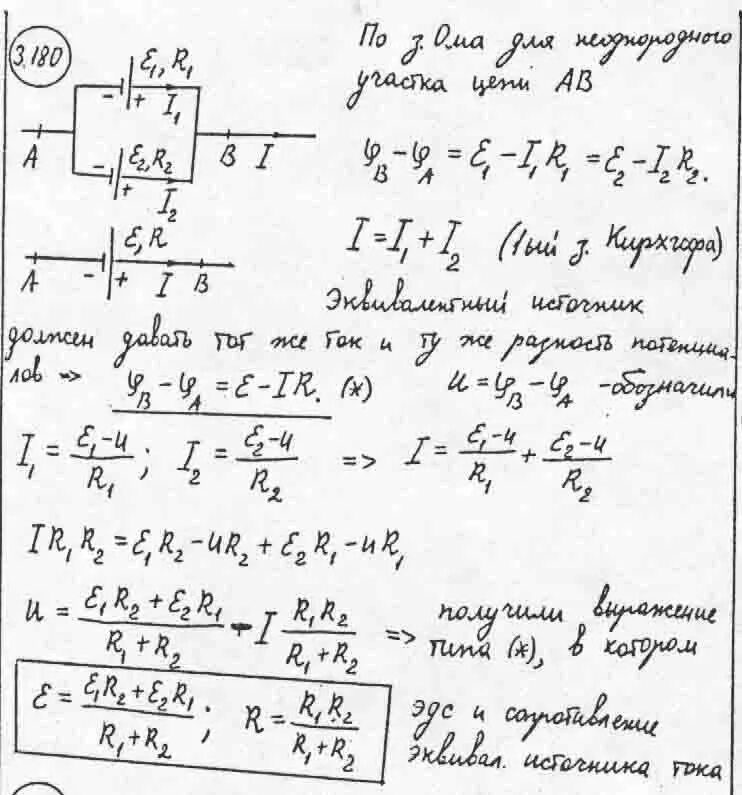 3.180
По з. Ома для неоднородного
участка цепи AB
ℰ₁, R₁
- + I₁
A
ℰ₂, R₂
B I
- + I₂
φ_B − φ_A = ℰ₁ − I₁R₁ = ℰ₂ − I₂R₂.
I = I₁ + I₂ (1ый з. Кирхгофа)
ℰ, R
A - + I B
Эквивалентный источник
должен давать тот же ток и ту же разность потенциа-
лов => φ_B − φ_A = ℰ − IR. (*) u = φ_B − φ_A - обозначили
I₁ = (ℰ₁ − u)/R₁ ; I₂ = (ℰ₂ − u)/R₂ => I = (ℰ₁ − u)/R₁ + (ℰ₂ − u)/R₂
IR₁R₂ = ℰ₁R₂ − uR₂ + ℰ₂R₁ − uR₁
u = (ℰ₁R₂ + ℰ₂R₁)/(R₁ + R₂) - I R₁R₂/(R₁ + R₂) => получили выражение
типа (*), в котором
ℰ = (ℰ₁R₂ + ℰ₂R₁)/(R₁ + R₂) ; R = R₁R₂/(R₁ + R₂)
эдс и сопротивление
эквивал. источника тока